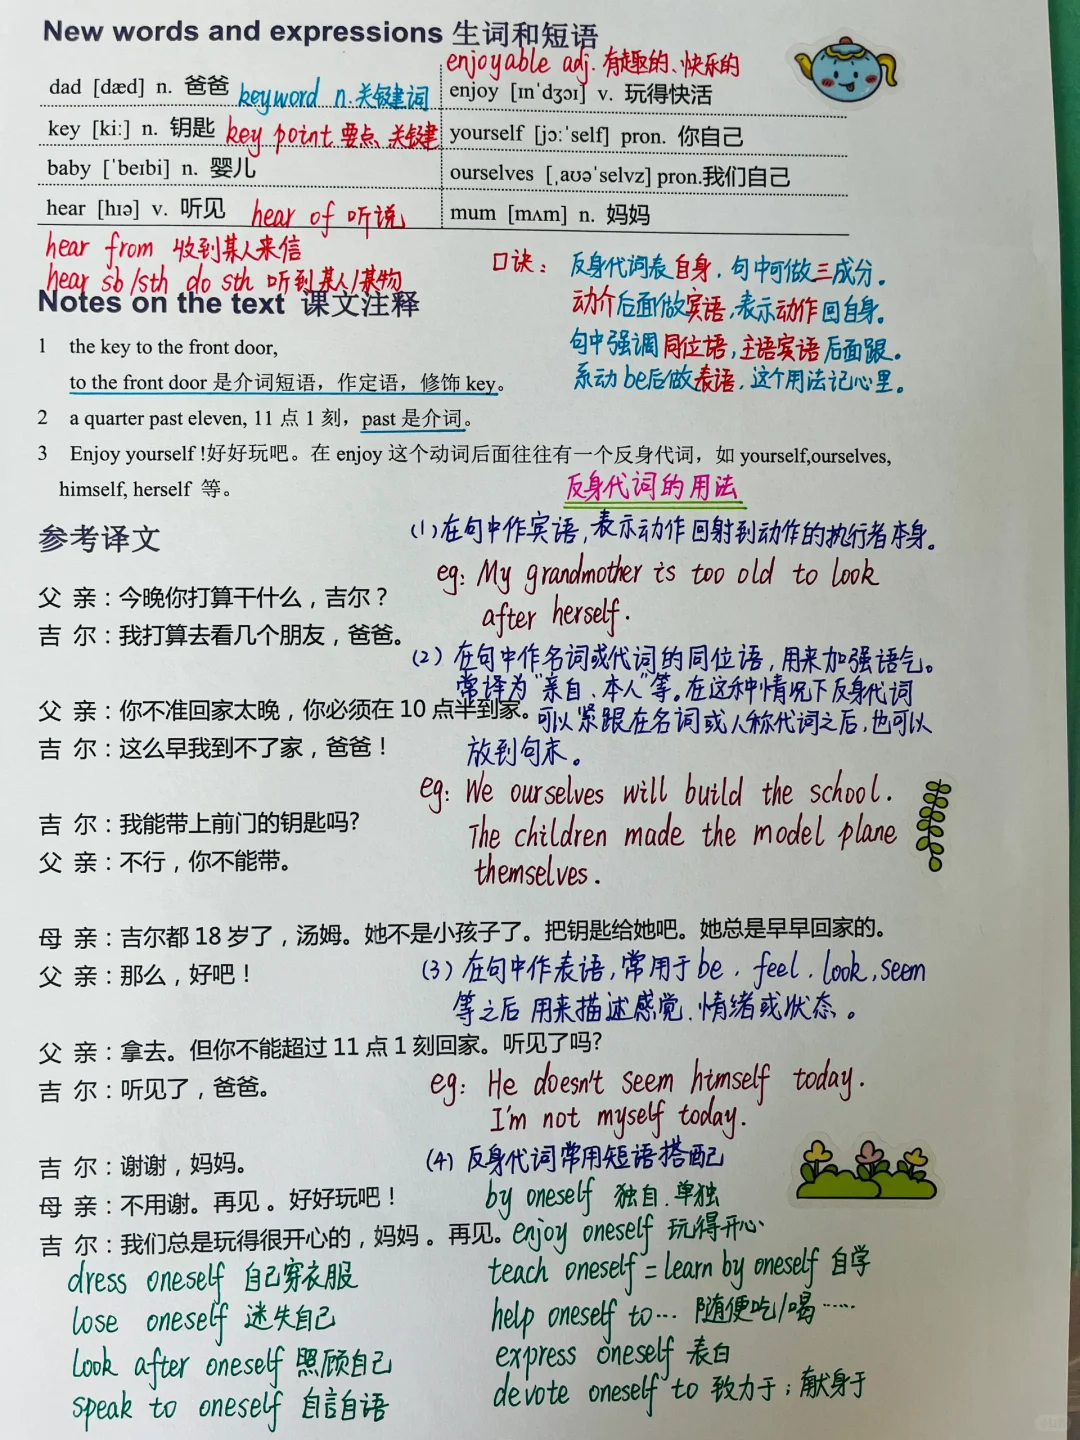 New words and expressions 生词和短语
enjoyable adj. 有趣的、快乐的
dad [dæd] n. 爸爸 keyword n.关键词
enjoy [ɪnˈdʒɔɪ] v. 玩得快活
key [kiː] n. 钥匙 key point 要点、关键
yourself [jɔːˈself] pron. 你自己
baby [ˈbeɪbi] n. 婴儿
ourselves [ˌaʊəˈselvz] pron.我们自己
hear [hɪə] v. 听见 hear of 听说
mum [mʌm] n. 妈妈
hear from 收到某人来信
hear sb/sth do sth 听到某人/某物
口诀：反身代词表自身，句中可做三成分。
动介后面做宾语,表示动作回自身。
句中强调同位语,主语宾语后面跟。
系动be后做表语,这个用法记心里。
Notes on the text 课文注释
1 the key to the front door,
to the front door 是介词短语，作定语，修饰 key。
2 a quarter past eleven, 11 点 1 刻，past 是介词。
3 Enjoy yourself !好好玩吧。在 enjoy 这个动词后面往往有一个反身代词，如 yourself,ourselves,
himself, herself 等。
反身代词的用法
(1)在句中作宾语,表示动作回射到动作的执行者本身。
eg: My grandmother is too old to look
after herself.
(2) 在句中作名词或代词的同位语,用来加强语气。
常译为"亲自、本人"等。在这种情况下反身代词
可以紧跟在名词或人称代词之后,也可以
放到句末。
eg: We ourselves will build the school.
The children made the model plane
themselves.
(3) 在句中作表语,常用于be、feel、look,seem
等之后 用来描述感觉、情绪或状态。
eg: He doesn't seem himself today.
I'm not myself today.
(4) 反身代词常用短语搭配
by oneself 独自、单独
enjoy oneself 玩得开心
teach oneself = learn by oneself 自学
help oneself to… 随便吃/喝……
express oneself 表白
devote oneself to 致力于；献身于
参考译文
父 亲：今晚你打算干什么，吉尔？
吉 尔：我打算去看几个朋友，爸爸。
父 亲：你不准回家太晚，你必须在 10 点半到家。
吉 尔：这么早我到不了家，爸爸！
吉 尔：我能带上前门的钥匙吗?
父 亲：不行，你不能带。
母 亲：吉尔都 18 岁了，汤姆。她不是小孩子了。把钥匙给她吧。她总是早早回家的。
父 亲：那么，好吧！
父 亲：拿去。但你不能超过 11 点 1 刻回家。听见了吗?
吉 尔：听见了，爸爸。
吉 尔：谢谢，妈妈。
母 亲：不用谢。再见 。好好玩吧！
吉 尔：我们总是玩得很开心的，妈妈 。再见。
dress oneself 自己穿衣服
lose oneself 迷失自己
look after oneself 照顾自己
speak to oneself 自言自语